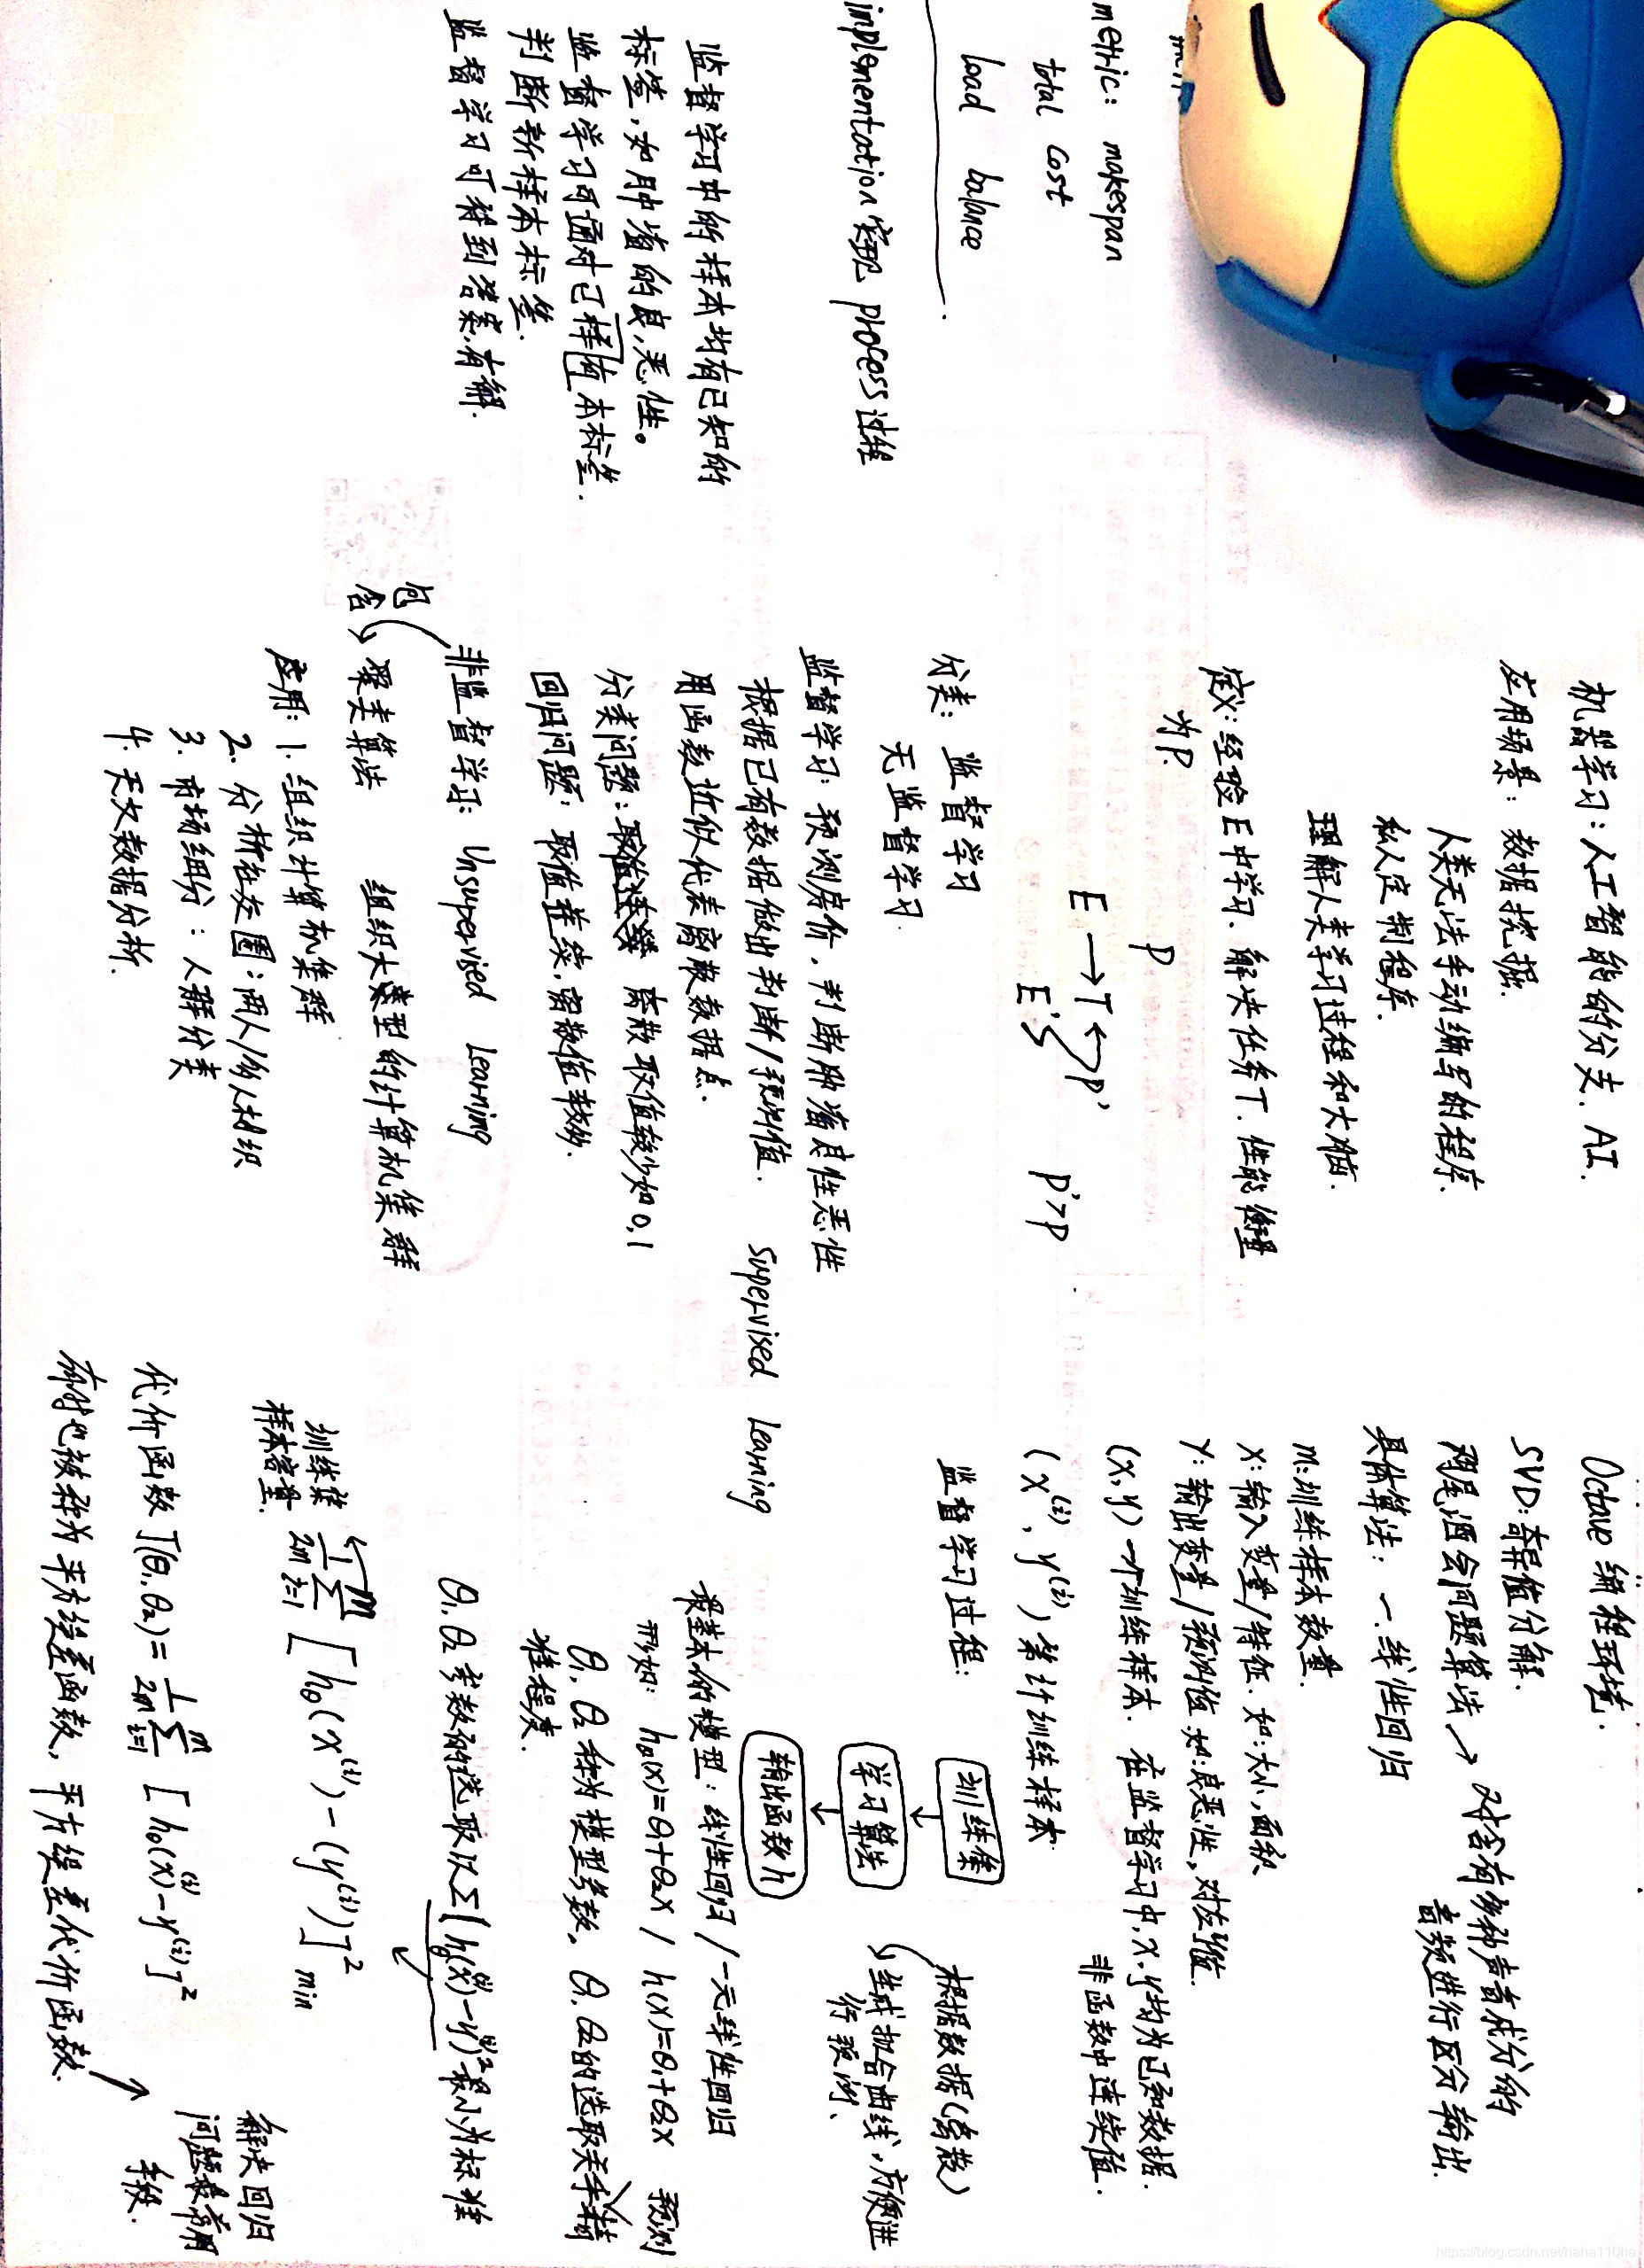 metric: makespan
total cost
load balance
inplementation 实现 process 过程
监督学习中的样本均有已知的
标签,如肿瘤的良,恶性。
监督学习可通对已样值本标签.
判断新样本标签.
监督学习可得到答案,有解.
机器学习:人工智能的分支. AI.
应用场景: 数据挖掘.
人类无法手动编写的程序.
私人定制程序.
理解人类学习过程和大脑.
定义:经验E中学习、解决任务T.性能衡量
为P.
P
E → T P'
E' P'>P
分类: 监督学习
无监督学习.
监督学习: 预测房价,判断肿瘤良性恶性
根据已有数据做出判断/预测值. Supervised Learning
用函数近似代表离散数据点.
分类问题: 离散取值较少如0,1
回归问题: 取值连续,离散值
非监督学习: Unsupervised Learning
包含
聚类算法 组织大类型的计算机集群
应用: 1. 组织计算机集群
2. 分析社友圈:两人/多人相识
3. 市场细分: 人群分类
4. 天文数据分析.
Octave 编程环境.
SVD:奇异值分解.
鸡尾酒会问题算法 → 对含有多种声音成分的
音频进行区分输出.
具体算法: 一.线性回归
m:训练样本数量.
X:输入变量/特征.如:大小,面积
Y:输出变量/预测值 如:良恶性,对应值.
(x,y) 一个训练样本. 在监督学习中,x,y均为已知数据.
非函数中连续值.
(x⁽ⁱ⁾, y⁽ⁱ⁾) 第i个训练样本.
监督学习过程:
训练集
学习算法
输出函数h
根据数据(离散)
生成拟合曲线,方便进
行预测、
最基本的模型: 线性回归/一元线性回归
形如: hθ(x)=θ₁+θ₂x / h(x)=θ₁+θ₂x 预测
θ₁,θ₂称为模型参数。θ₁,θ₂的选取关乎精
准程度.
θ₁,θ₂参数的选取以Σ(hθ(x⁽ⁱ⁾)-y⁽ⁱ⁾)²最小为标准
训练集
样本容量. 1/2m Σᵢ₌₁ᵐ [hθ(x⁽ⁱ⁾)-(y⁽ⁱ⁾)]² min
代价函数 J(θ₁,θ₂)= 1/2m Σᵢ₌₁ᵐ [hθ(x)⁽ⁱ⁾-y⁽ⁱ⁾]²
有时也被称为平方误差函数,平方误差代价函数.
解决回归
问题最常用
手段.
https://blog.csdn.net/haha110ha